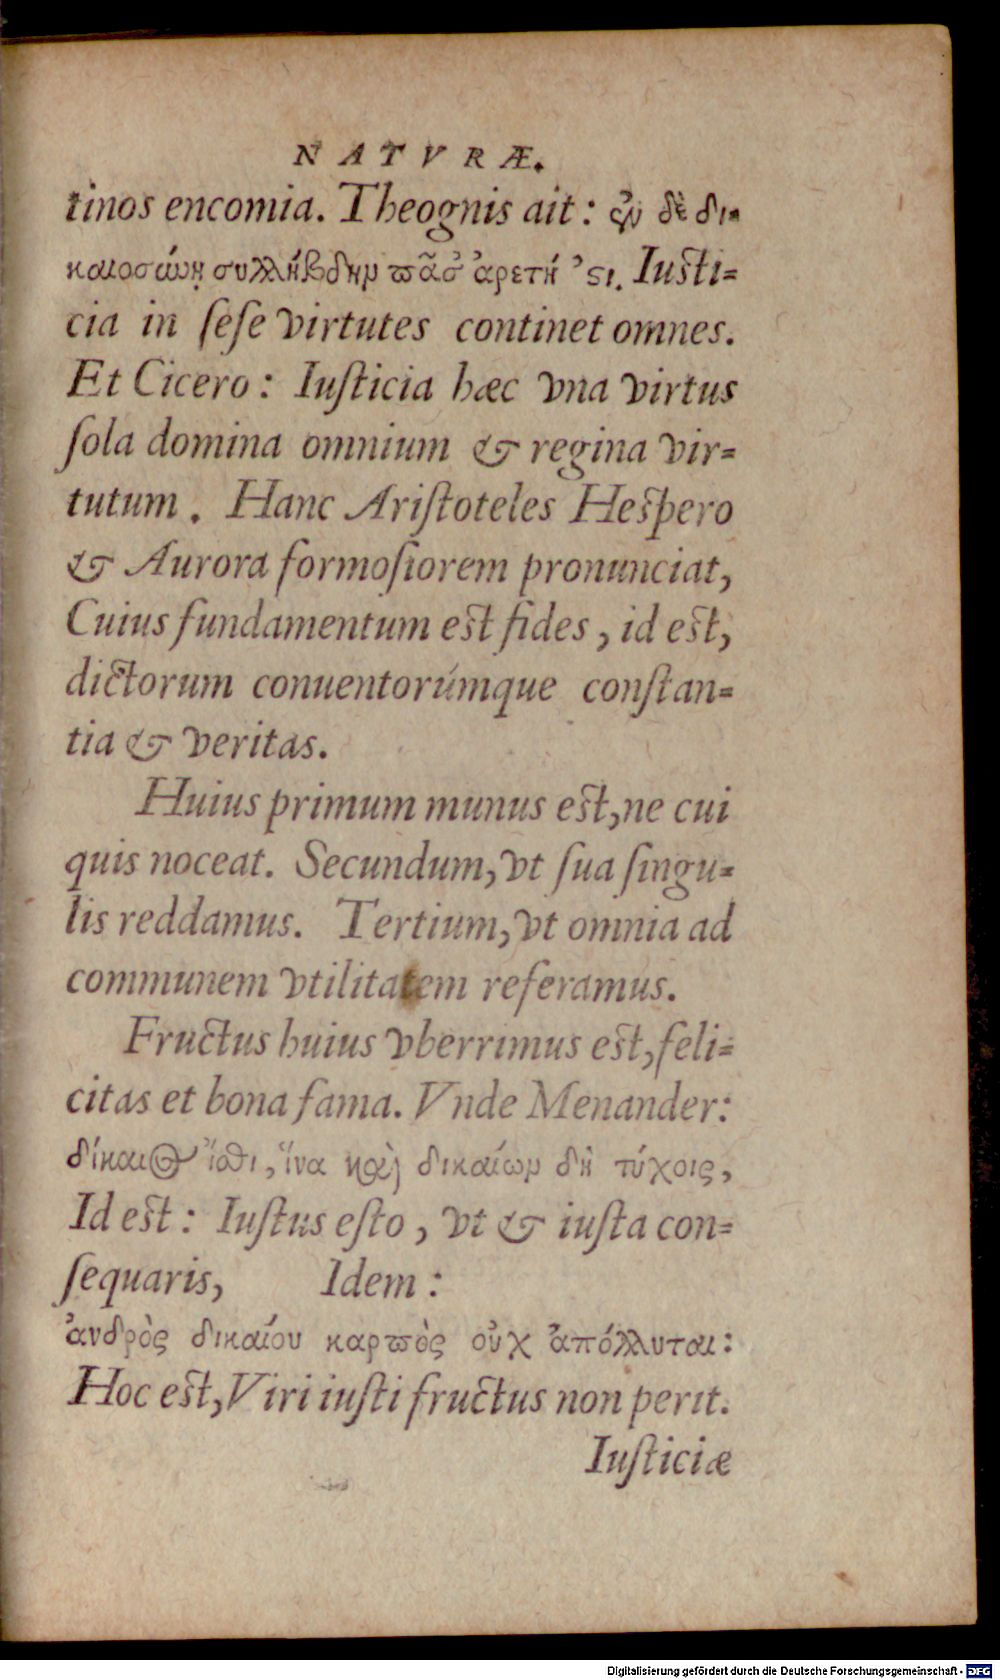 NATVRÆ.
tinos encomia. Theognis ait: ἐν δὲ δι-
καιοσύνῃ συλλήβδην πᾶσ' ἀρετή 'ϛι. Iusti-
cia in sese virtutes continet omnes.
Et Cicero: Iusticia hæc vna virtus
sola domina omnium & regina vir-
tutum. Hanc Aristoteles Hespero
& Aurora formosiorem pronunciat,
Cuius fundamentum est fides, id est,
dictorum conuentorúmque constan-
tia & veritas.
Huius primum munus est, ne cui
quis noceat. Secundum, vt sua singu-
lis reddamus. Tertium, vt omnia ad
communem vtilitatem referamus.
Fructus huius vberrimus est, feli-
citas et bona fama. Vnde Menander:
δίκαιος ἴσθι, ἵνα καὶ δικαίων δὴ τύχοις,
Id est: Iustus esto, vt & iusta con-
sequaris, Idem:
ἀνδρὸς δικαίου καρπὸς οὐχ ἀπόλλυται:
Hoc est, Viri iusti fructus non perit.
Iusticiæ
Digitalisierung gefördert durch die Deutsche Forschungsgemeinschaft - DFG